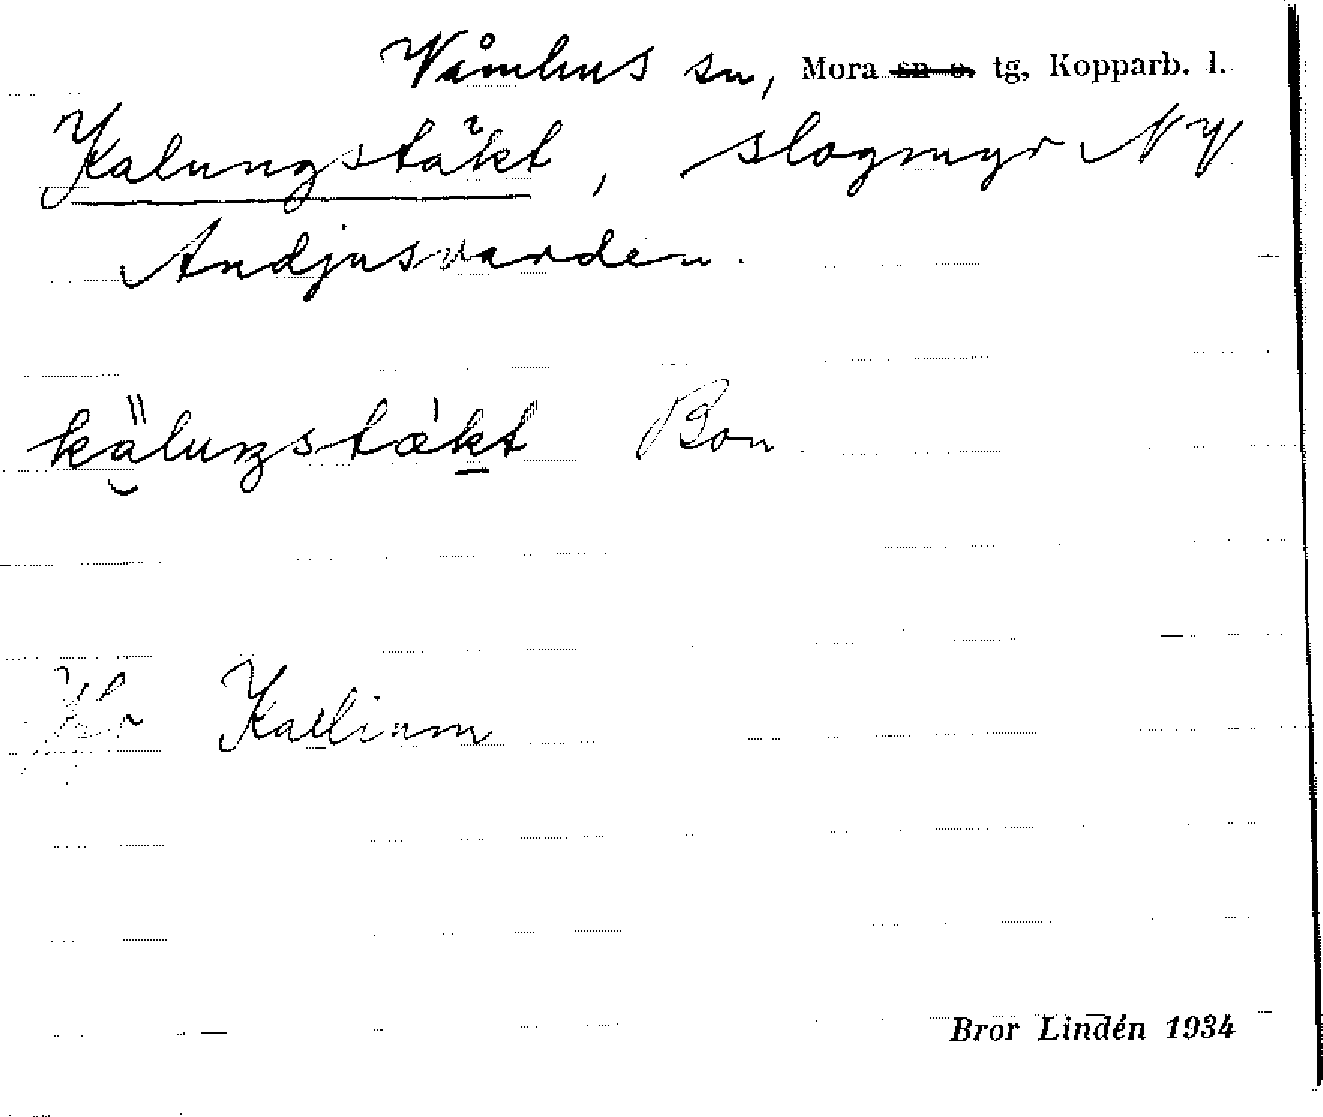 Våmhus sn, Mora sn o. tg, Kopparb. l.
Kalungstäkt, slogmyr NV
Andjusvarden.
kälungstäkt Bon
Kallinm
Bror Lindén 1934